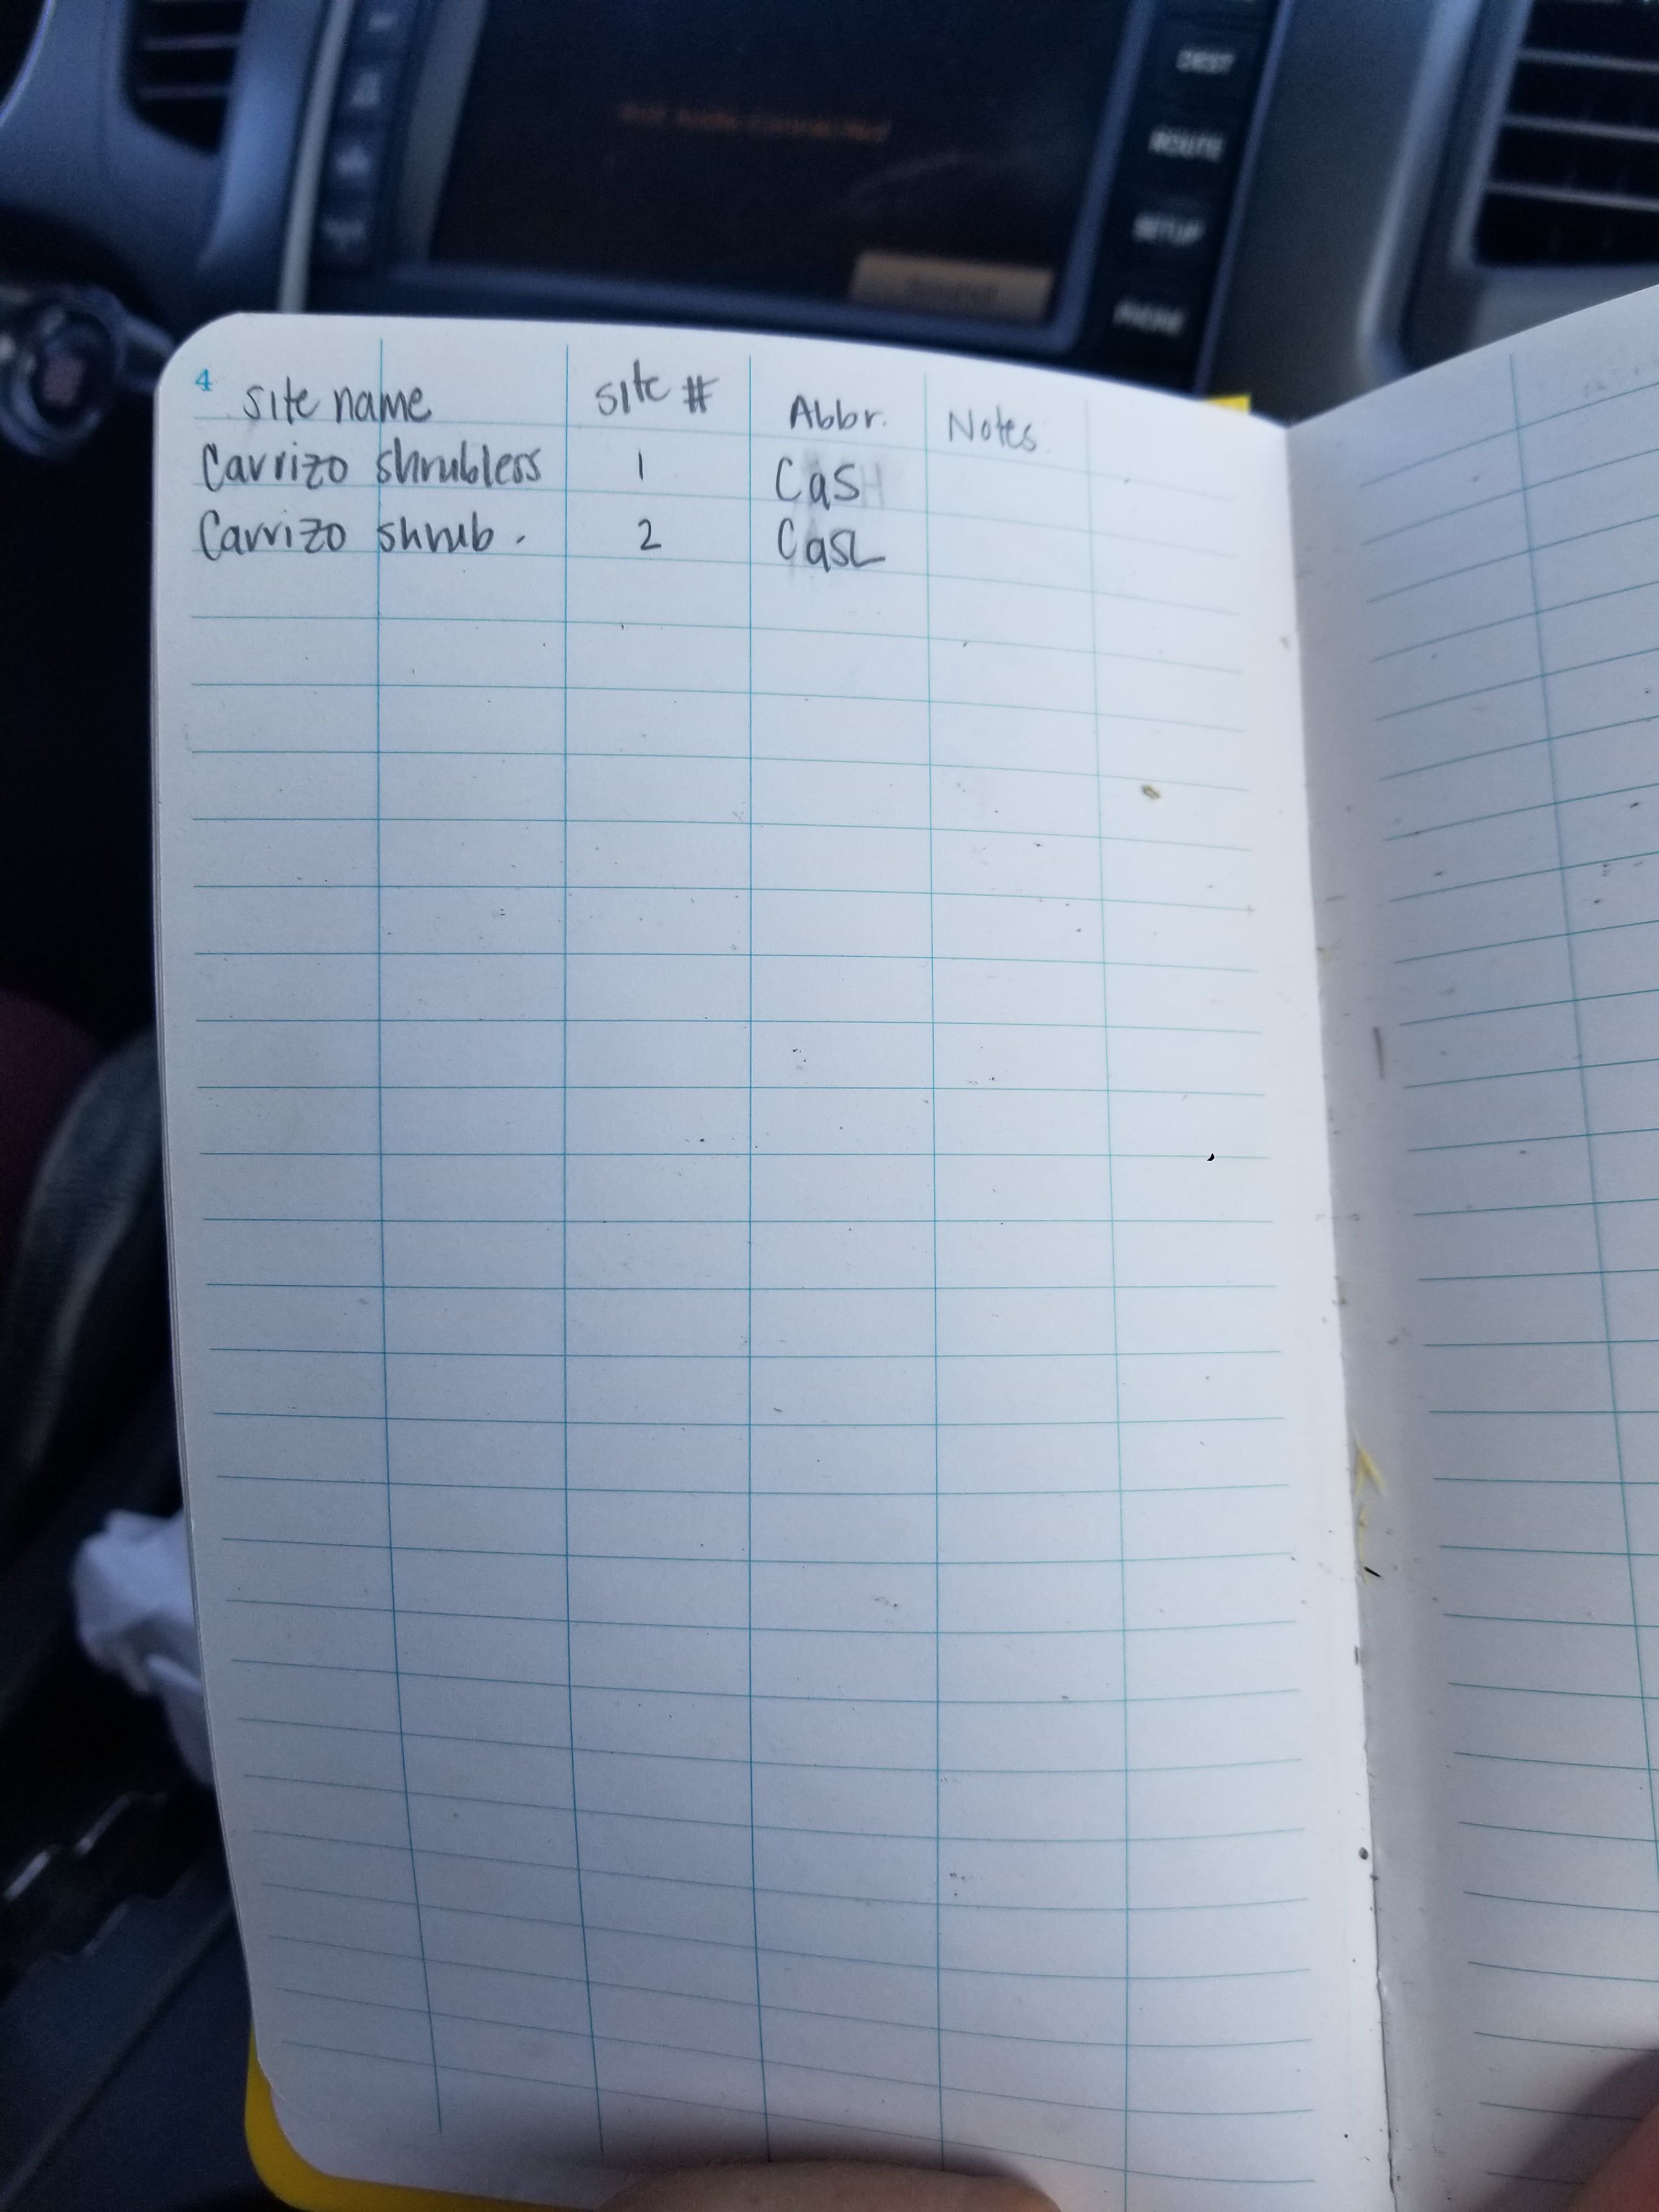 DEST
ROUTE
SETUP
PHONE
4
Site name Site # Abbr. Notes
Carrizo shrubless 1 CaS
Carrizo shrub. 2 CaSL